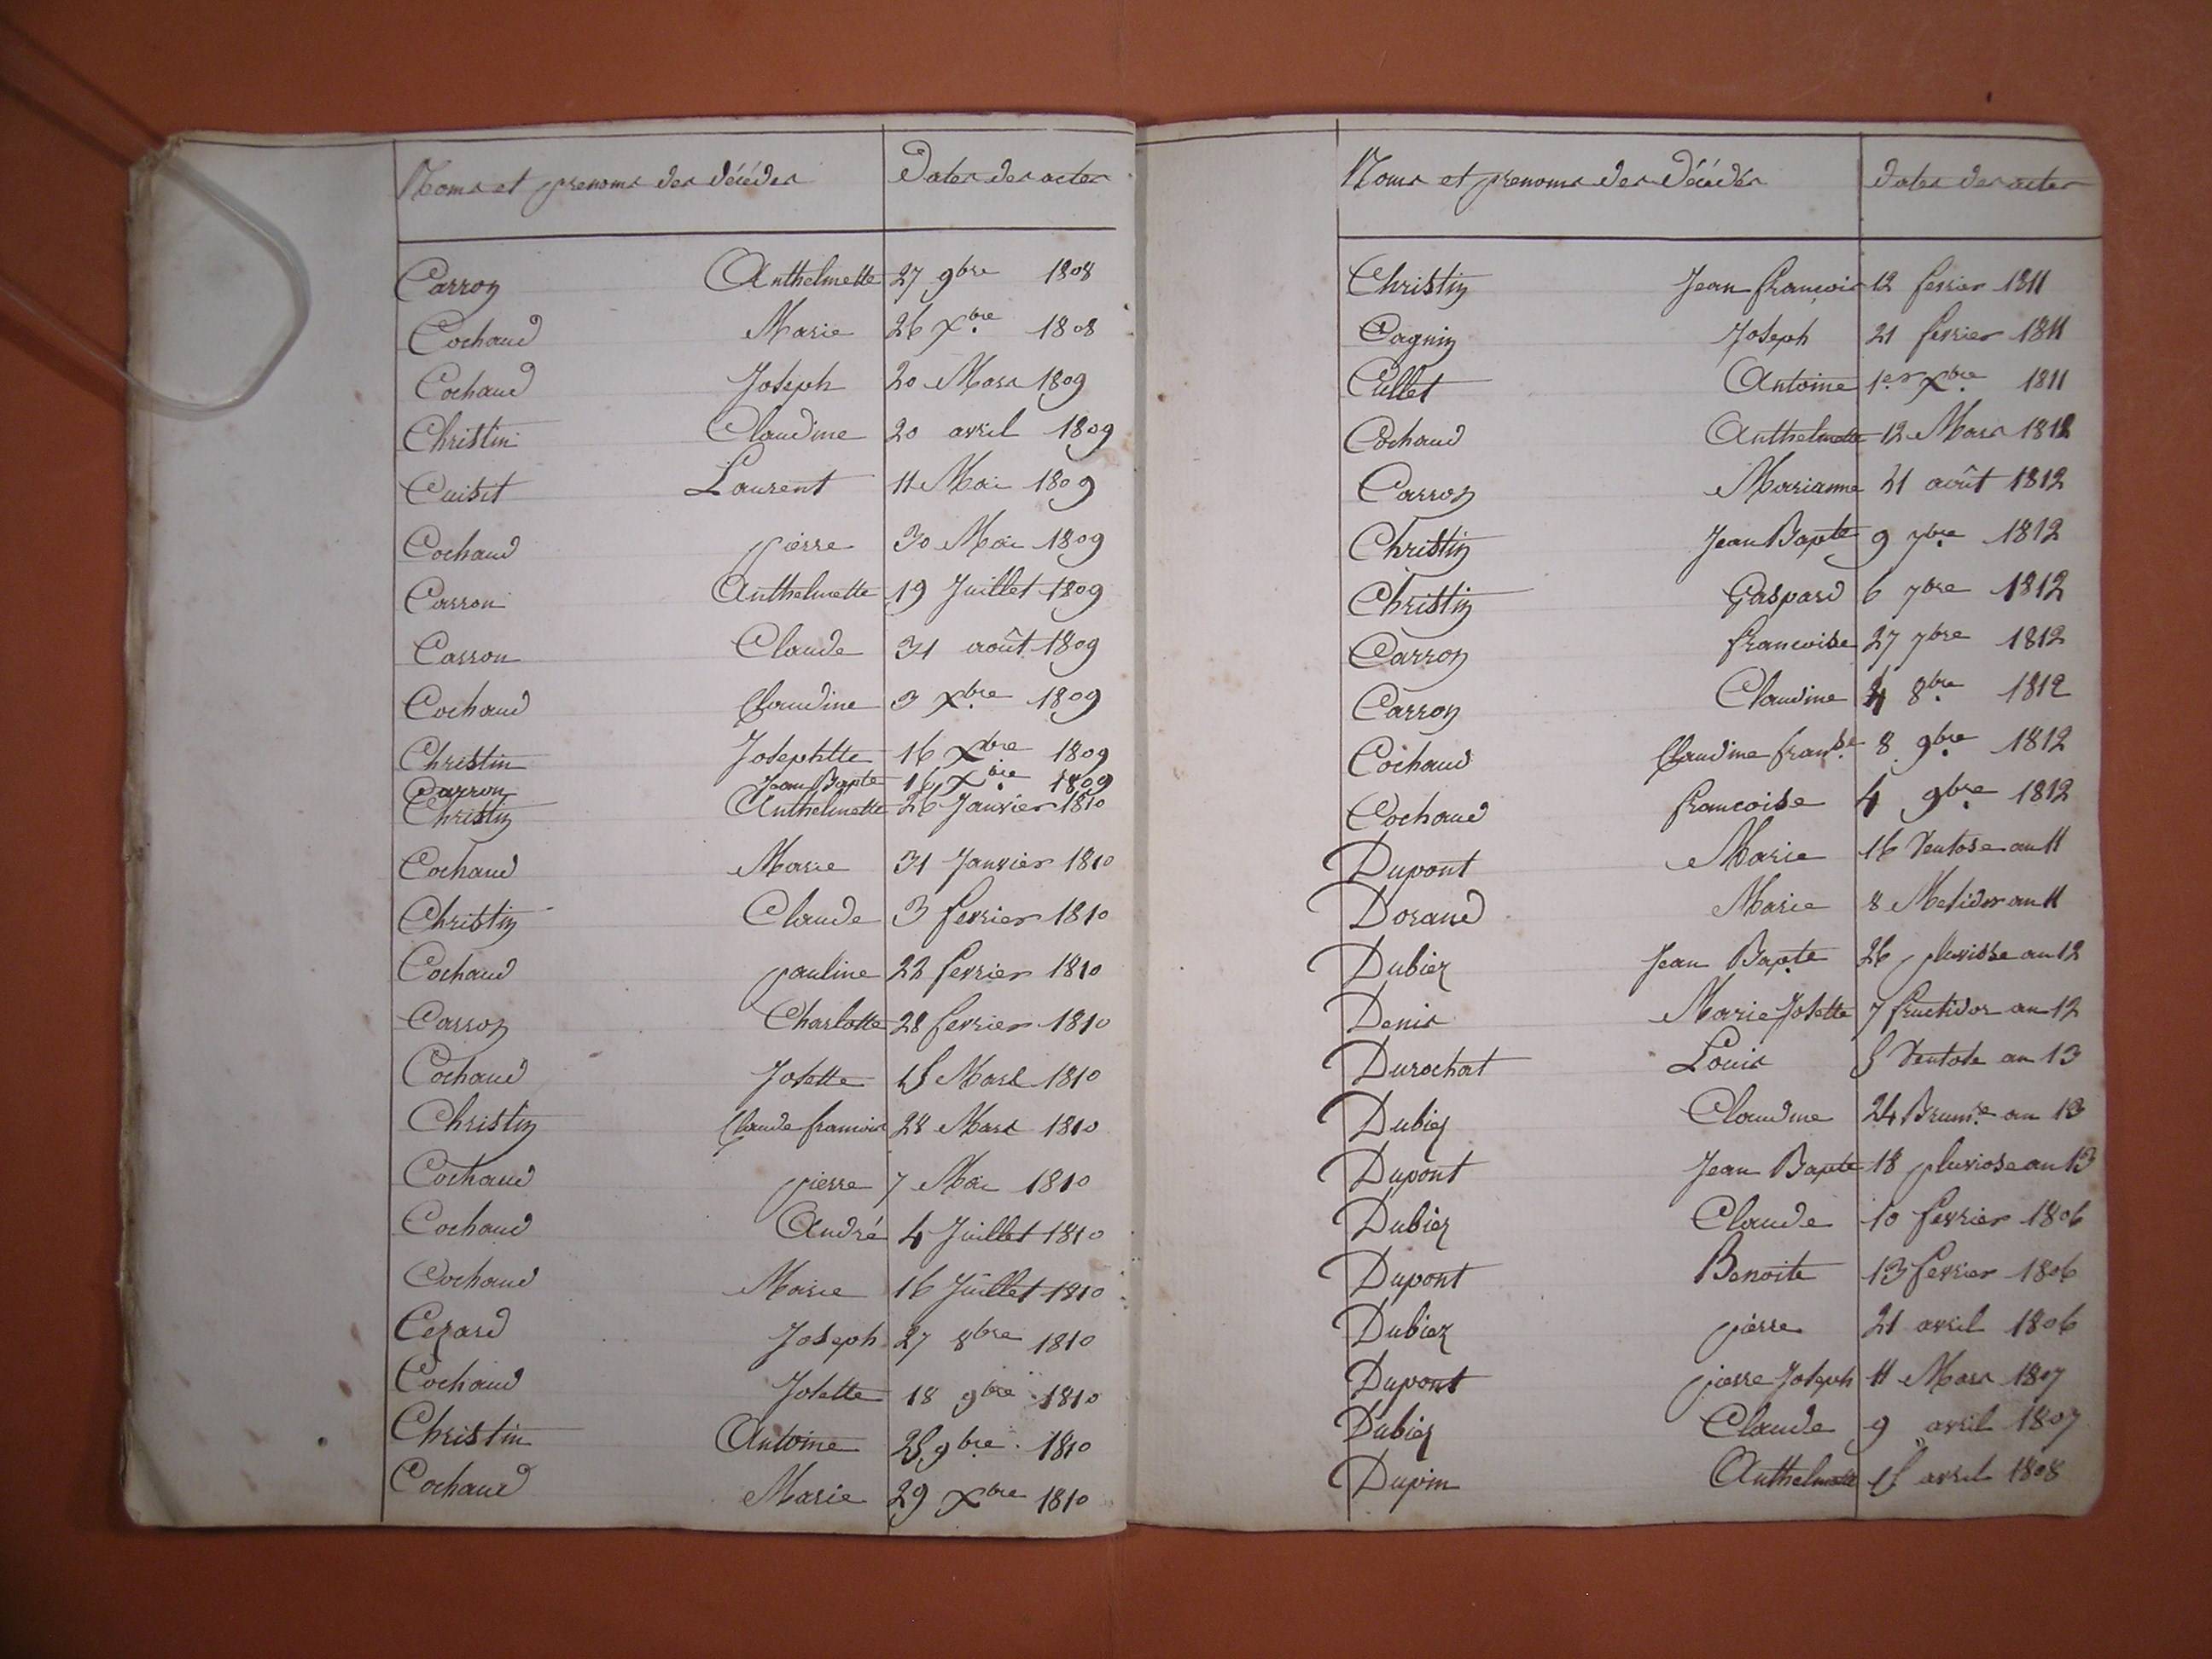 Noms et prenoms des décédés Dates des actes
Carron Anthelmette 27 9bre 1808
Cochaud Marie 26 Xbre 1808
Cochaud Joseph 20 Mars 1809
Christin Claudine 20 avril 1809
Cuisit Laurent 11 Mai 1809
Cochaud pierre 30 Mai 1809
Carron Anthelmette 19 Juillet 1809
Carron Claude 31 août 1809
Cochaud Claudine 3 Xbre 1809
Christin Josephtte 16 Xbre 1809
Carron Jean Bapte 16 Xbre 1809
Christin Anthelmette 26 Janvier 1810
Cochaud Marie 31 Janvier 1810
Christin Claude 3 fevrier 1810
Cochaud pauline 22 fevrier 1810
Carron Charlotte 28 fevrier 1810
Cochaud Josette 15 Mars 1810
Christin Claude francois 28 Mars 1810
Cochaud pierre 7 Mai 1810
Cochaud André 4 Juillet 1810
Cochaud Marie 16 Juillet 1810
Cezard Joseph 27 8bre 1810
Cochaud Josette 18 9bre 1810
Christin Antoine 25 9bre 1810
Cochaud Marie 29 Xbre 1810
Noms et prenoms des Décédés Dates des actes
Christin Jean francois 12 fevrier 1811
Cagnin Joseph 21 fevrier 1811
Cullet Antoine 1er Xbre 1811
Cochaud Anthelmette 12 Mars 1812
Carron Marianne 21 août 1812
Christin Jean Bapte 9 7bre 1812
Christin Gaspard 6 7bre 1812
Carron francoise 27 7bre 1812
Carron Claudine 4 8bre 1812
Cochaud Claudine franse 8 9bre 1812
Cochaud francoise 4 9bre 1812
Dupont Marie 16 Ventose an 11
Dorand Marie 8 Mesidor an 11
Dubiez Jean Bapte 26 pluviose an 12
Denis Marie Josette 7 fructidor an 12
Durochat Louis 5 Ventose an 13
Dubiez Claudine 24 Brumre an 13
Dupont Jean Bapte 18 pluviose an 13
Dubiez Claude 10 fevrier 1806
Dupont Benoite 13 fevrier 1806
Dubiez pierre 21 avril 1806
Dupont pierre Joseph 11 Mars 1807
Dubiez Claude 9 avril 1807
Dupin Anthelmette 15 avril 1808